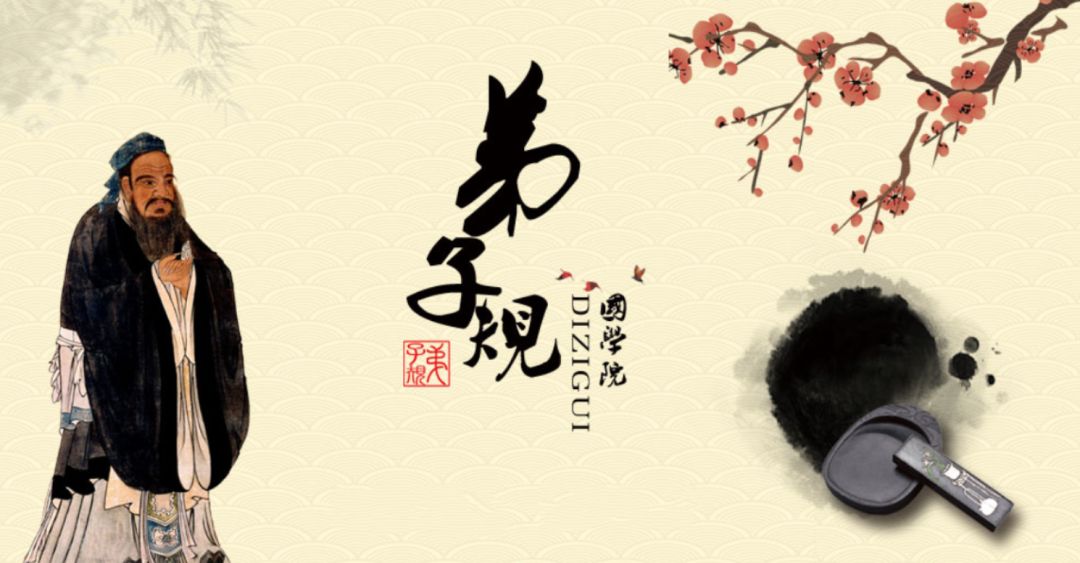 弟子規
國學院
DIZIGUI
弟子規